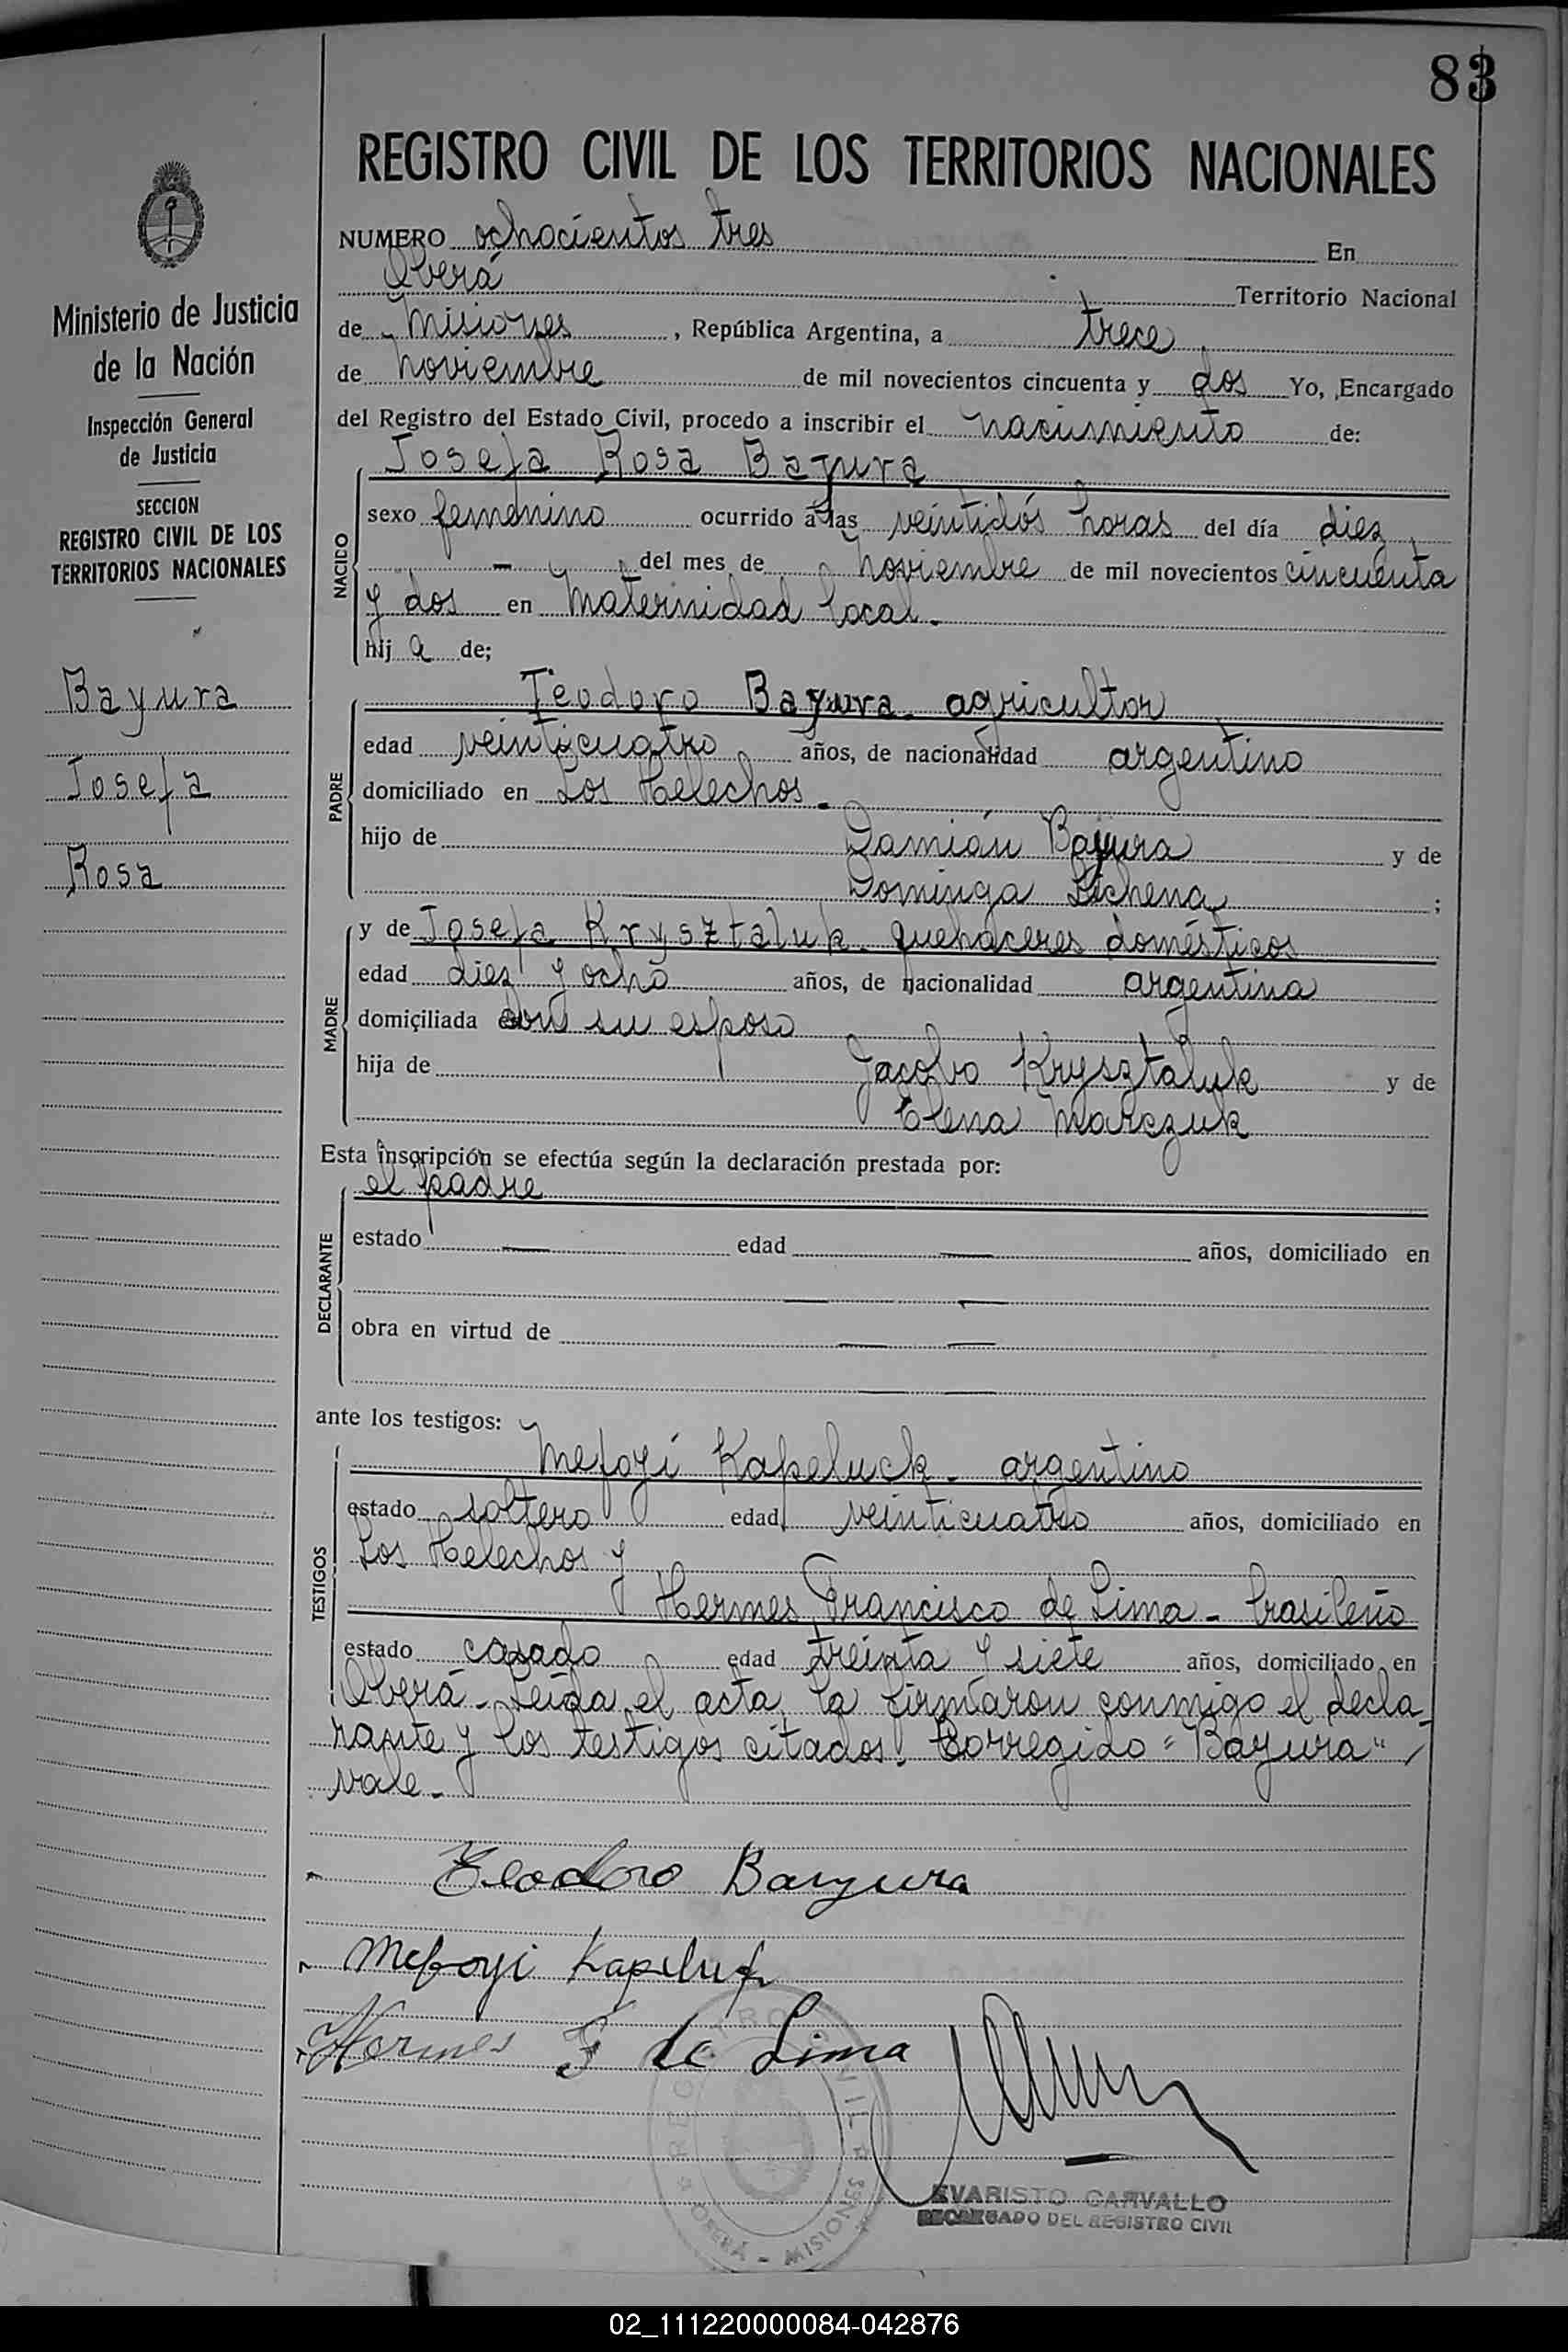 83
REGISTRO CIVIL DE LOS TERRITORIOS NACIONALES
Ministerio de Justicia
de la Nación
Inspección General
de Justicia
SECCION
REGISTRO CIVIL DE LOS
TERRITORIOS NACIONALES
Bayura
Josefa
Rosa
NUMERO ochocientos tres En
Oberá Territorio Nacional
de Misiones, República Argentina, a trece
de noviembre de mil novecientos cincuenta y dos Yo, Encargado
del Registro del Estado Civil, procedo a inscribir el nacimiento de:
Josefa Rosa Bayura
NACIDO
sexo femenino ocurrido a las veintidós horas del día diez
- del mes de noviembre de mil novecientos cincuenta
y dos en Maternidad local.
hij a de;
PADRE
Teodoro Bayura - agricultor
edad veinticuatro años, de nacionalidad argentino
domiciliado en Los Helechos.
hijo de Damián Bayura y de
Dominga Sichena;
MADRE
y de Josefa Krysztaluk - quehaceres domésticos
edad diez y ocho años, de nacionalidad argentina
domiciliada con su esposo
hija de Jacobo Krysztaluk y de
Elena Marczuk
Esta inscripción se efectúa según la declaración prestada por:
DECLARANTE
el padre
estado — edad — años, domiciliado en
— —
obra en virtud de — —
—
ante los testigos:
TESTIGOS
Mefoyi Kapeluck - argentino
estado soltero edad veinticuatro años, domiciliado en
Los Helechos y
Hermes Francisco de Lima - brasileño
estado casado edad treinta y siete años, domiciliado en
Oberá - Leída el acta, la firmaron conmigo el decla-
rante y los testigos citados. Corregido "Bayura"
vale.-
Teodoro Bayura
Mefoyi Kapeluk
Hermes F de Lima
REGISTRO CIVIL
OBERÁ - MISIONES
EVARISTO CARVALLO
ENCARGADO DEL REGISTRO CIVIL
02_111220000084-042876